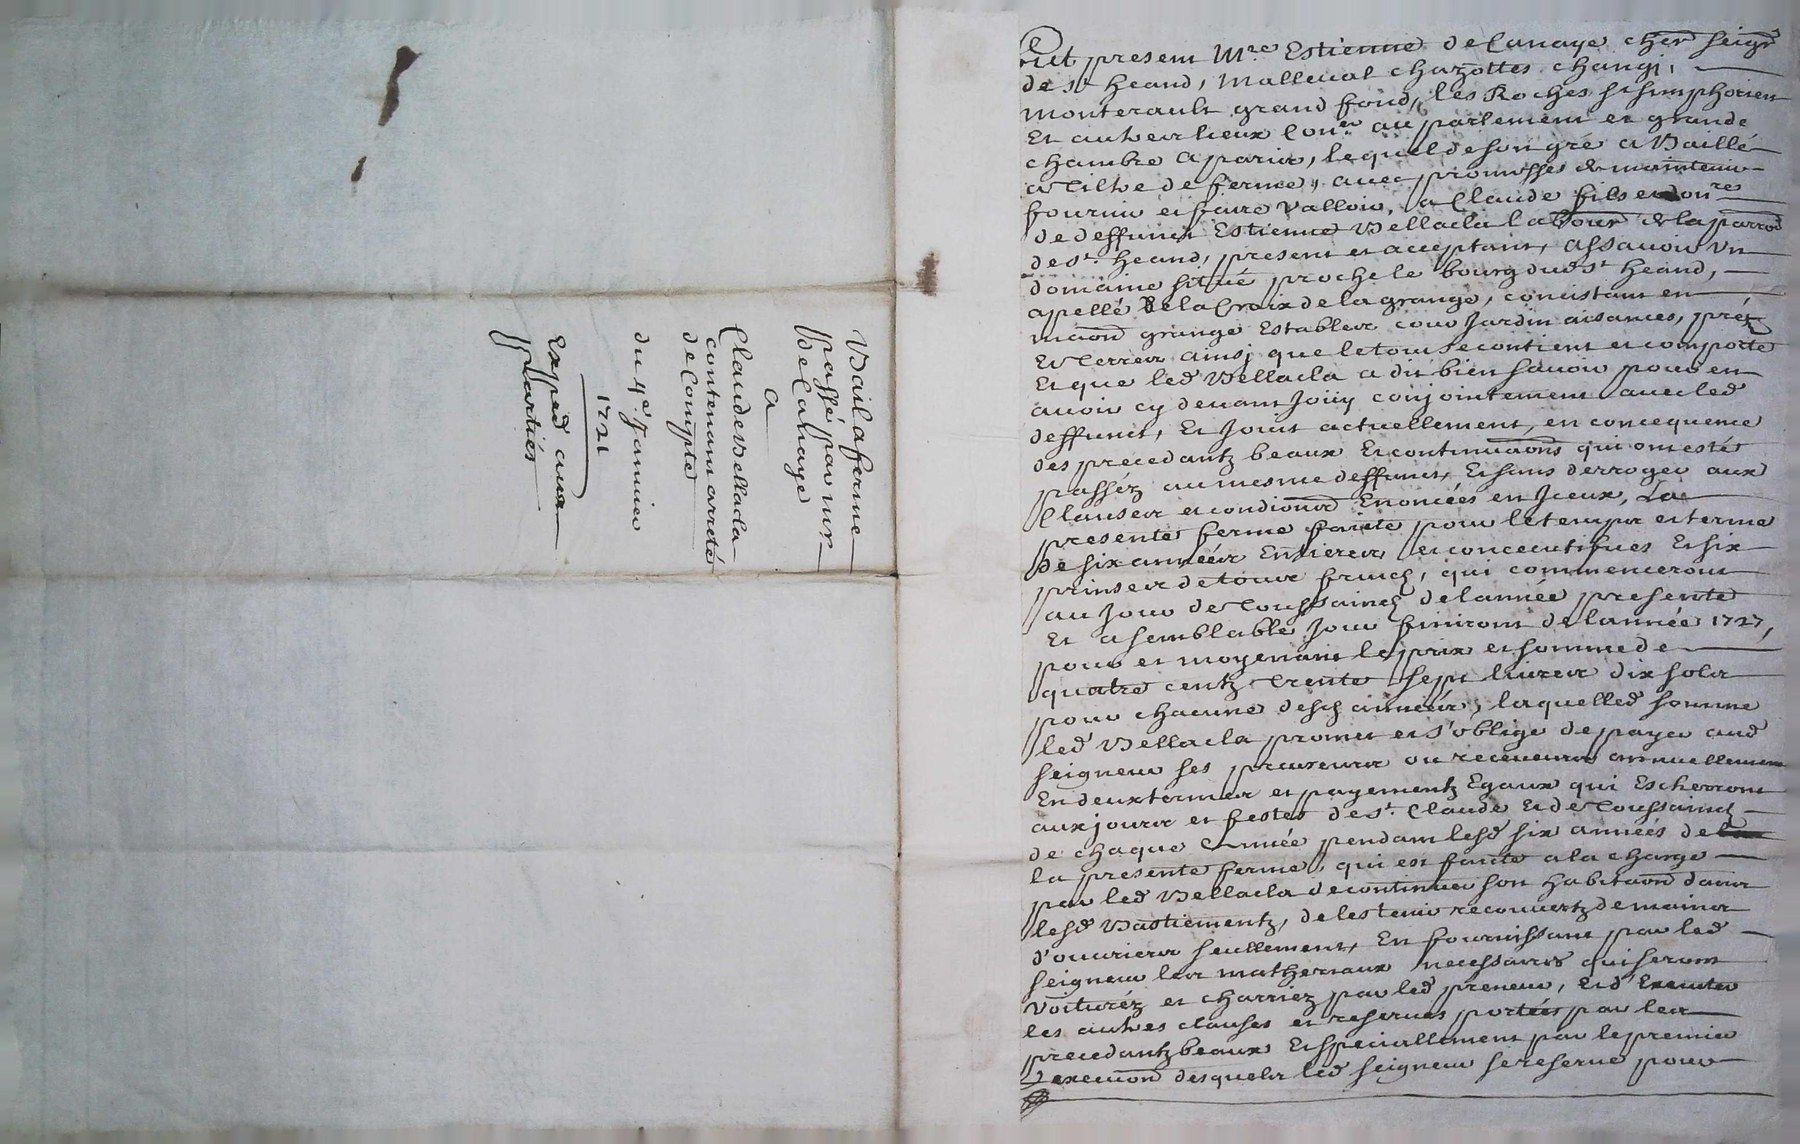 Bail a ferme
passé par mr
De Lanaye
A
Claude Vellacla
contenant arreté
de Compte
du 4e. Janvier
1721
Exped aux
parties
fut present Mre Estienne de Lanaye cher seigr
de st heand, Malleval chazottes changi,
Monterault grand fond, les Roches st simphorien
Et autres lieux Coner au parlement et grande
chambre a paris, lequel de son gré a Baillé
a tiltre de ferme, avec promesses de maintenir
fournir et faire valloir, a Claude fils et donres
de deffunct Estienne Vellacla labour de la parrod
de st. heand, present et acceptant, assavoir un
domaine situé proche le bourg dud st heand,
apellé De la Croix de la grange, concistant en
maond grange Establer cour Jardin aisances, prés
Et terres ainsj que le tout se contient et comporte
Et que led Vellacla a dit bien savoir pour en
avoir cy devant Jouy conjointement avec led
deffunct, Et Jouit actuellement, en concequence
des precedantz beaux Et continuaons qui ont estés
passéz au mesme deffunct, Et sans derroger aux
Clauses et condiond Enoncées en Jceux, La
presente ferme faicte pour le temps et terme
De six années Entieres et concecutifves Et six
prinses de tous fruicts, qui commenceront
au Jour de toussainct de lannée presente
Et a semblable Jour finiront de lannée 1727,
pour et moyenant le prix et somme de
quatre centz trente sept livres dix sols
pour chacune desd années, laquelled somme
led Vellacla promet et s'oblige de payer aud
seigneur ses procureurs ou receveurs annuellement
En deux termes et payementz Egaux qui Escherront
aux jours et festes de st. Claude Et de Toussainct
de chaque année pendant lesd six années de
la presente ferme, qui est faite a la charge
par led Vellacla de continuer son habitaond dans
lesd Bastiementz, de les tenir recouvertz de mains
d'ouvriers seullement, En fournissant par led
seigneur les matheriaux necessaires qui seront
Voituréz et charriez par led preneur, Et d'Executer
les autres clauses et reserves portées par les
precedantz beaux Et speciallement par le premier
Execuond desquels led seigneur se reserve pour